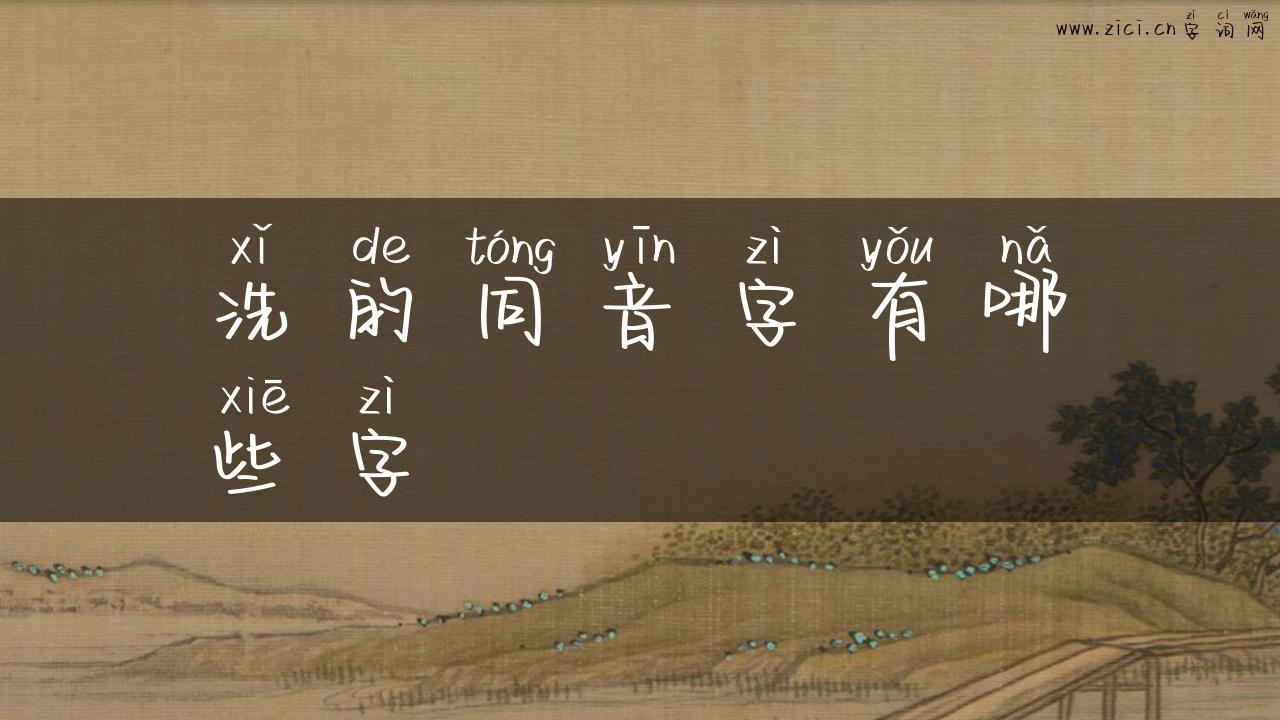 zì cí wǎng
www.zici.cn 字 词 网
xǐ de tóng yīn zì yǒu nǎ
洗 的 同 音 字 有 哪
xiē zì
些 字